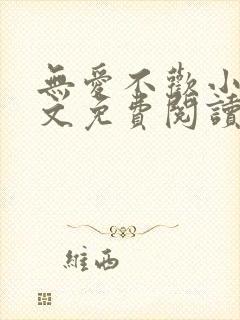 無愛不歡小
文免費閱讀
維西